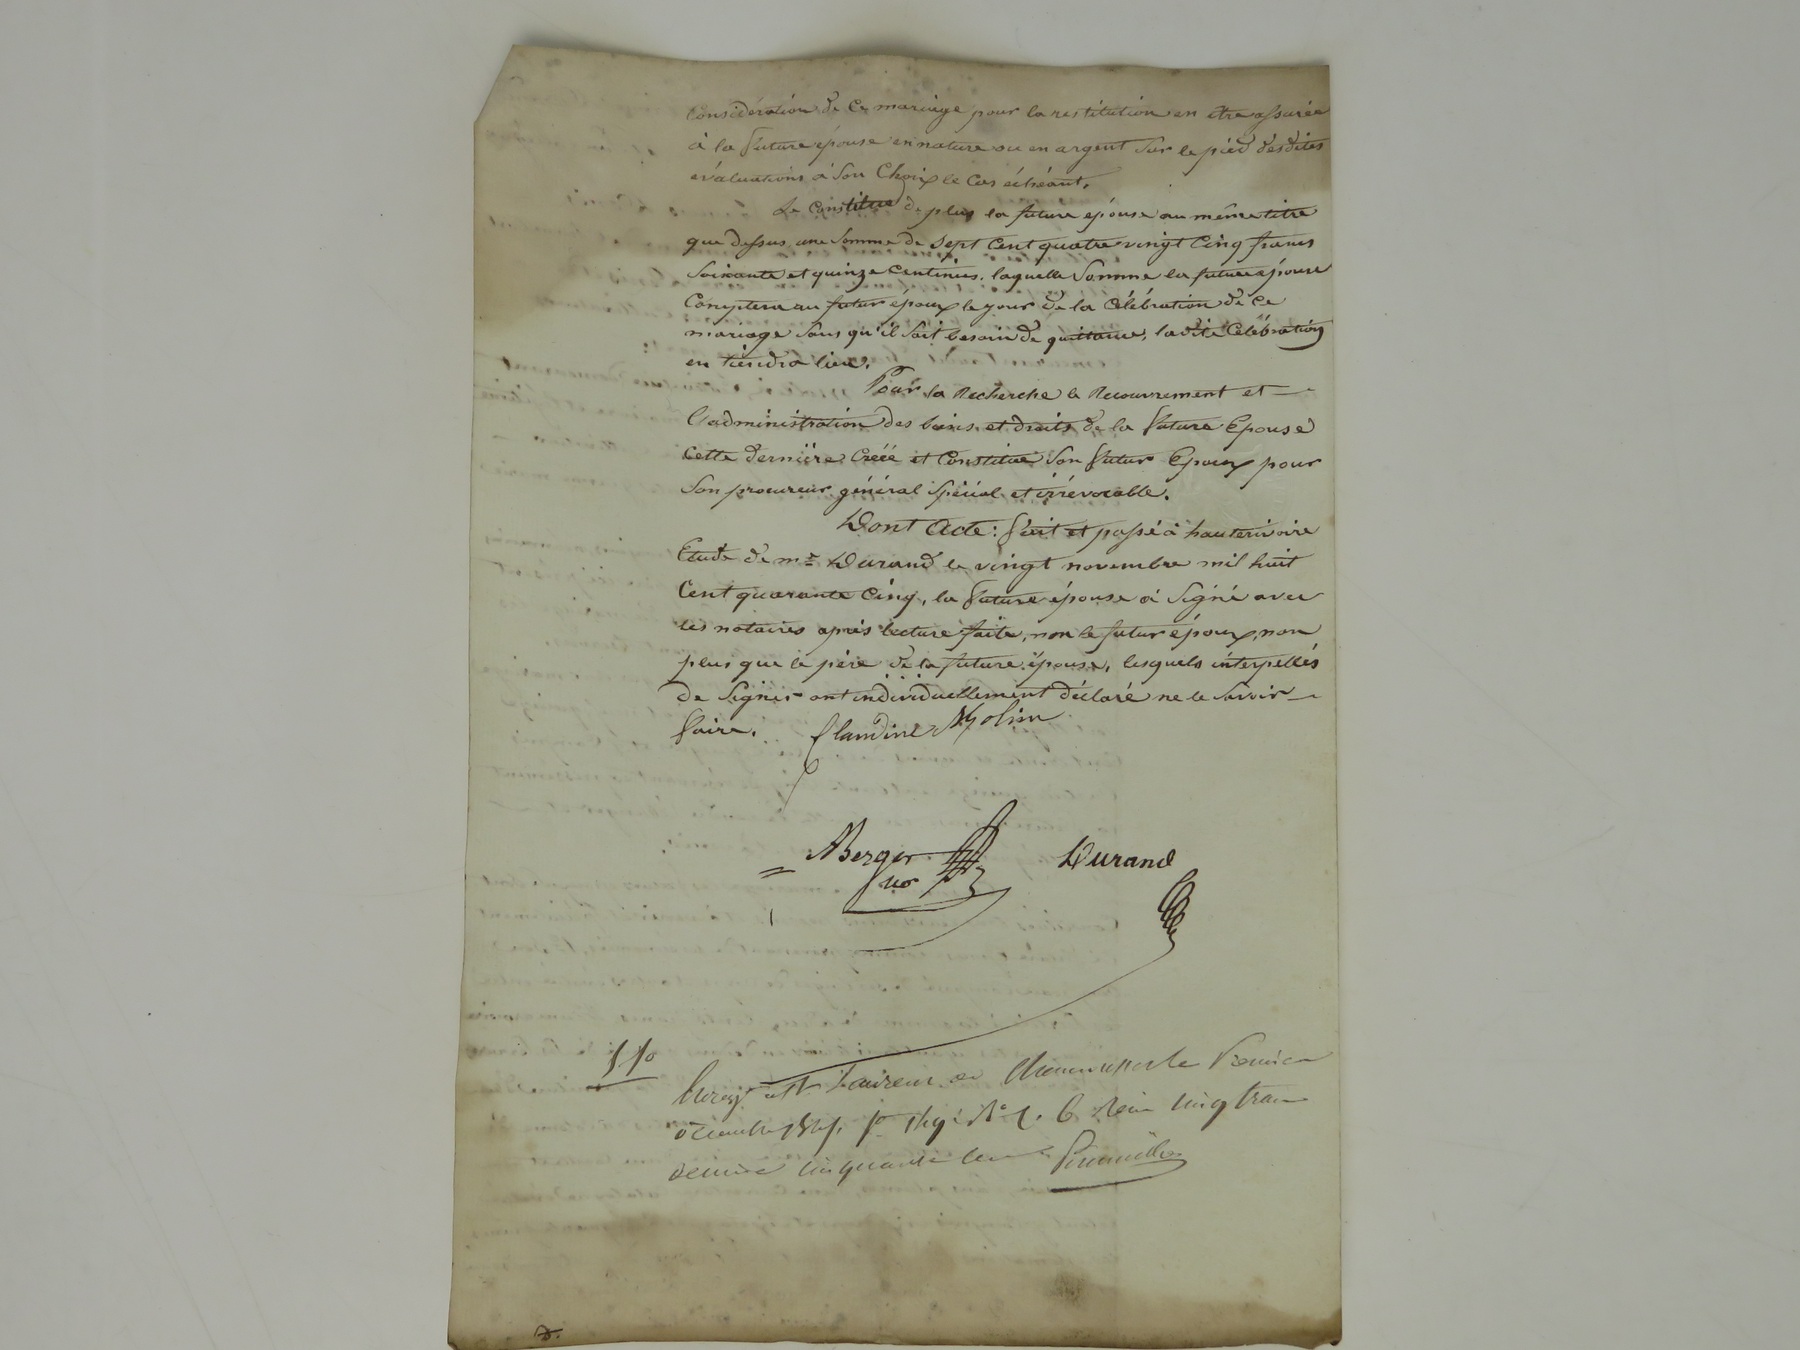 Considération de Ce mariage pour la restitution en etre assurée
à la future épouse en nature ou en argent Sur le pied desdites
évaluations à Son Choix le Cas échéant.
Se Constitue de plus la future épouse au même titre
que dessus une Somme de Sept Cent quatre vingt Cinq francs
Soixante et quinze Centimes, laquelle Somme la future épouse
Comptera au futur époux le jour de la Célébration de Ce
mariage Sans qu'il Soit besoin de quittance, la dite Célébration
en tiendra lieu.
Pour la Recherche le Recouvrement et
l'administration des biens et droits de la future Epouse
Cette dernière Créée et Constitue Son futur Epoux pour
Son procureur général Spécial et irrévocable.
Dont Acte : fait et passé à hauterivoire
Etude de me Durand le vingt novembre mil huit
Cent quarante Cinq, la future épouse à Signé avec
les notaires après lecture faite, non le futur époux, non
plus que le père de la future épouse, lesquels interpellés
de Signer ont individuellement déclaré ne le Savoir
faire.
Claudine Molin
Berger
Durand
St Laurent de Chamousset le Premier
fo
cinquante